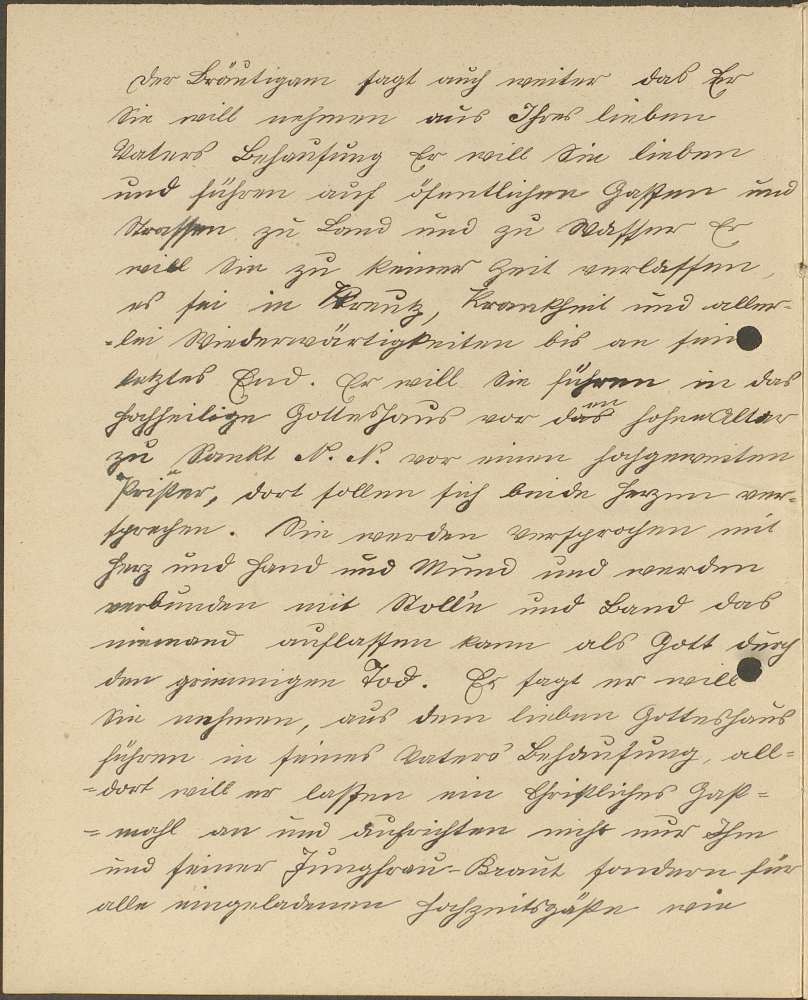 Der Bräutigam sagt auch weiter das Er
Sie will nehmen aus Ihres lieben
Vaters Behausung Er will Sie lieben
und führen auf öfentlichen Gassen und
Strassen zu Land und zu Wasser Er
will Sie zu keiner Zeit verlassen,
es sei in Kreutz, Krankheit und aller-
-lei Wiederwärtigkeiten bis an sein
letztes End. Er will Sie führen in das
hochheilige Gotteshaus vor den hohen Altar
zu Sankt N. N. vor einen hochgeweiten
Prister, dort sollen sich beide Herzen ver-
sprechen. Sie werden versprochen mit
Herz und Hand und Mund und werden
verbunden mit Stolle und Band das
niemand auflassen kann als Gott durch
den grimmigen Tod. Es sagt er will
Sie nehmen, aus dem lieben Gotteshaus
führen in seines Vaters Behausung, all=
=dort will er lassen ein Christliches Gast=
=mahl an und aufrichten nicht nur Ihm
und seiner Jungfrau-Braut sondern für
alle eingeladenen Hochzeitsgäste wie